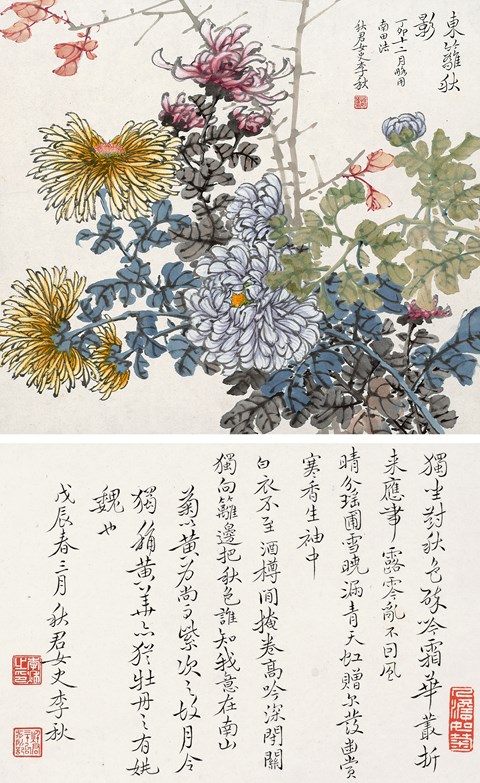 東籬秋
影
丁卯十二月略用
南田法
秋君女史李秋
獨坐對秋色破吟霜華叢折
来應帶露零亂不回風
晴分瑶圃雪曉漏青天虹贈尔發幽賞
寒香生袖中
白衣不至酒樽閒掩卷高吟深閉關
獨向籬邊把秋色誰知我意在南山
菊以黄为尚而紫次之故月令
獨稱黄華亦猶牡丹之有姚
魏也
戊辰春三月秋君女史李秋
人澹如菊